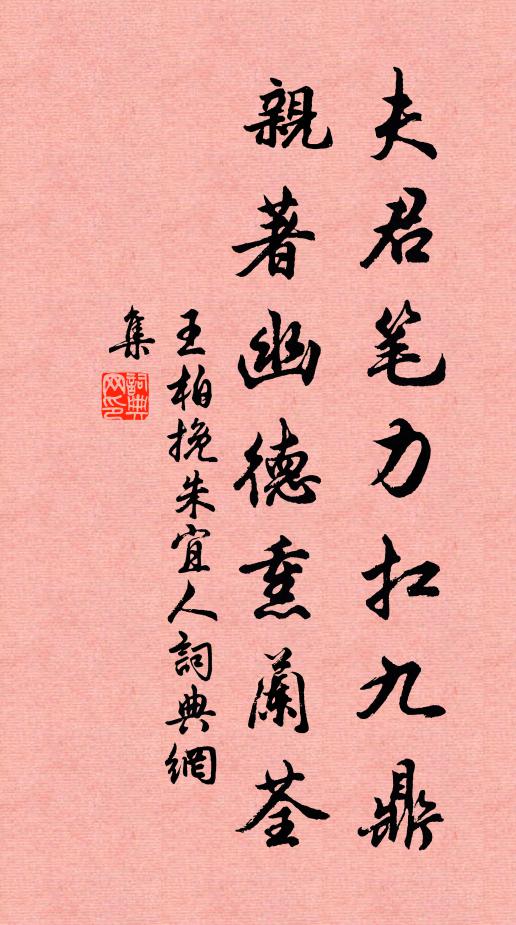 夫君笔力扛九鼎
親著幽德熏蘭荃
王柏挽朱宜人詞典網
集
詞典網印